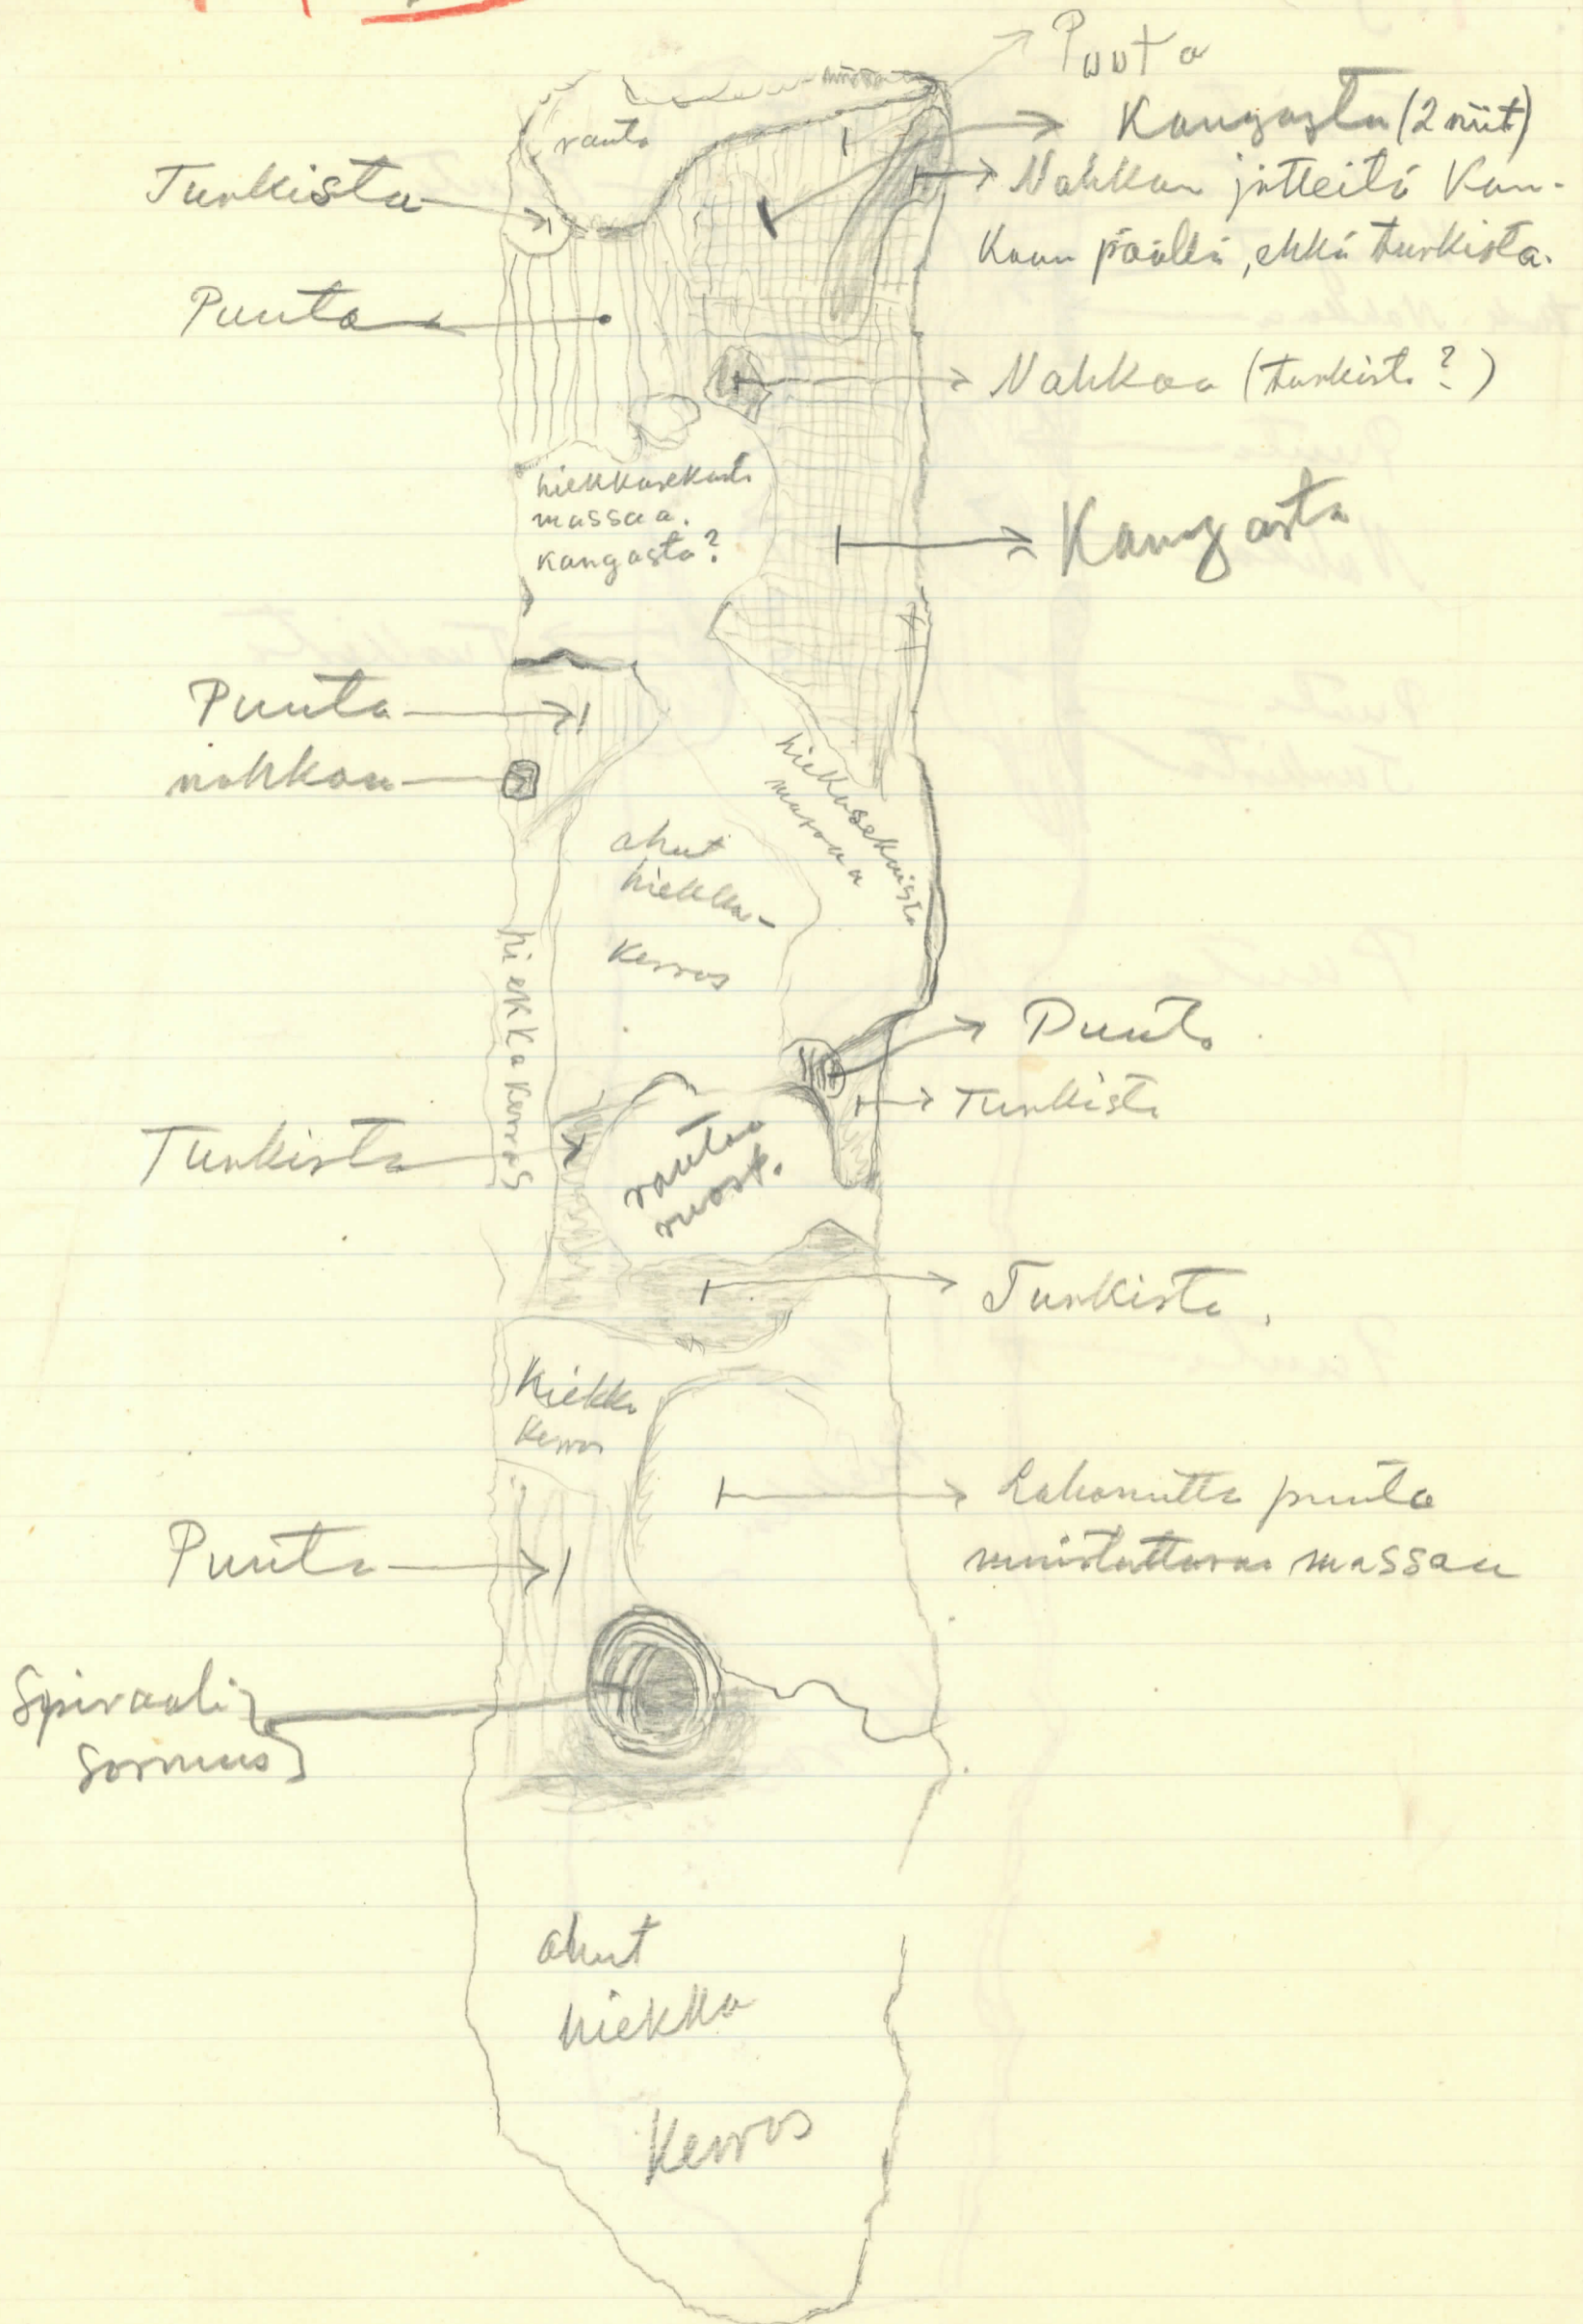 Puuta
Kangasta (2 niit)
rauta
Turkista
Nahkan jätteitä Kan-
kaan päällä, ehkä turkista.
Puuta
Nahkaa (turkist. ?)
hiekkasekaista
massaa.
kangasta?
Kangasta
Puuta
nahkaa
hiekkasekaista
massaa
ohut
hiekka-
kerros
hiekkakerros
Puuta
Turkista
Turkista
rautaa
ruost.
Turkista.
hiekka
kerros
Lahonutta puuta
muistuttavaa massaa
Puuta
Spiraali
Sormus
ohut
hiekka
Kerros